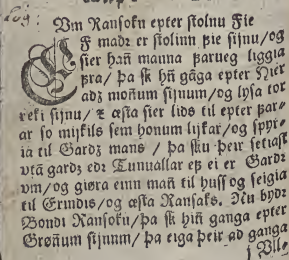 Vm Ransokn epter stolnu Fie
EF madr er stolinn þie sijnu/og
sier han̄ manna þarueg liggia
þra/ þa sk hn̄ gāga epter Nier
adz mon̄um sijnum/og lysa tor
reki sijnu/ ꝛ æsta sier lids til epter þar-
ar so mijkils sem honum lijkar/og spyr-
ia til Gardz mans / þa sku þeir setiast
vtā gardz edr Tunuallar ef ei er Gardr
vm/og giøra einn man̄ til huss og seigia
til Erindis/og æsta Ransaks. Nu bydr
Bondi Ransokn/þa sk hin̄ ganga epter
Grøn̄um sijnum/ þa eiga þeir ad ganga
j Vll-